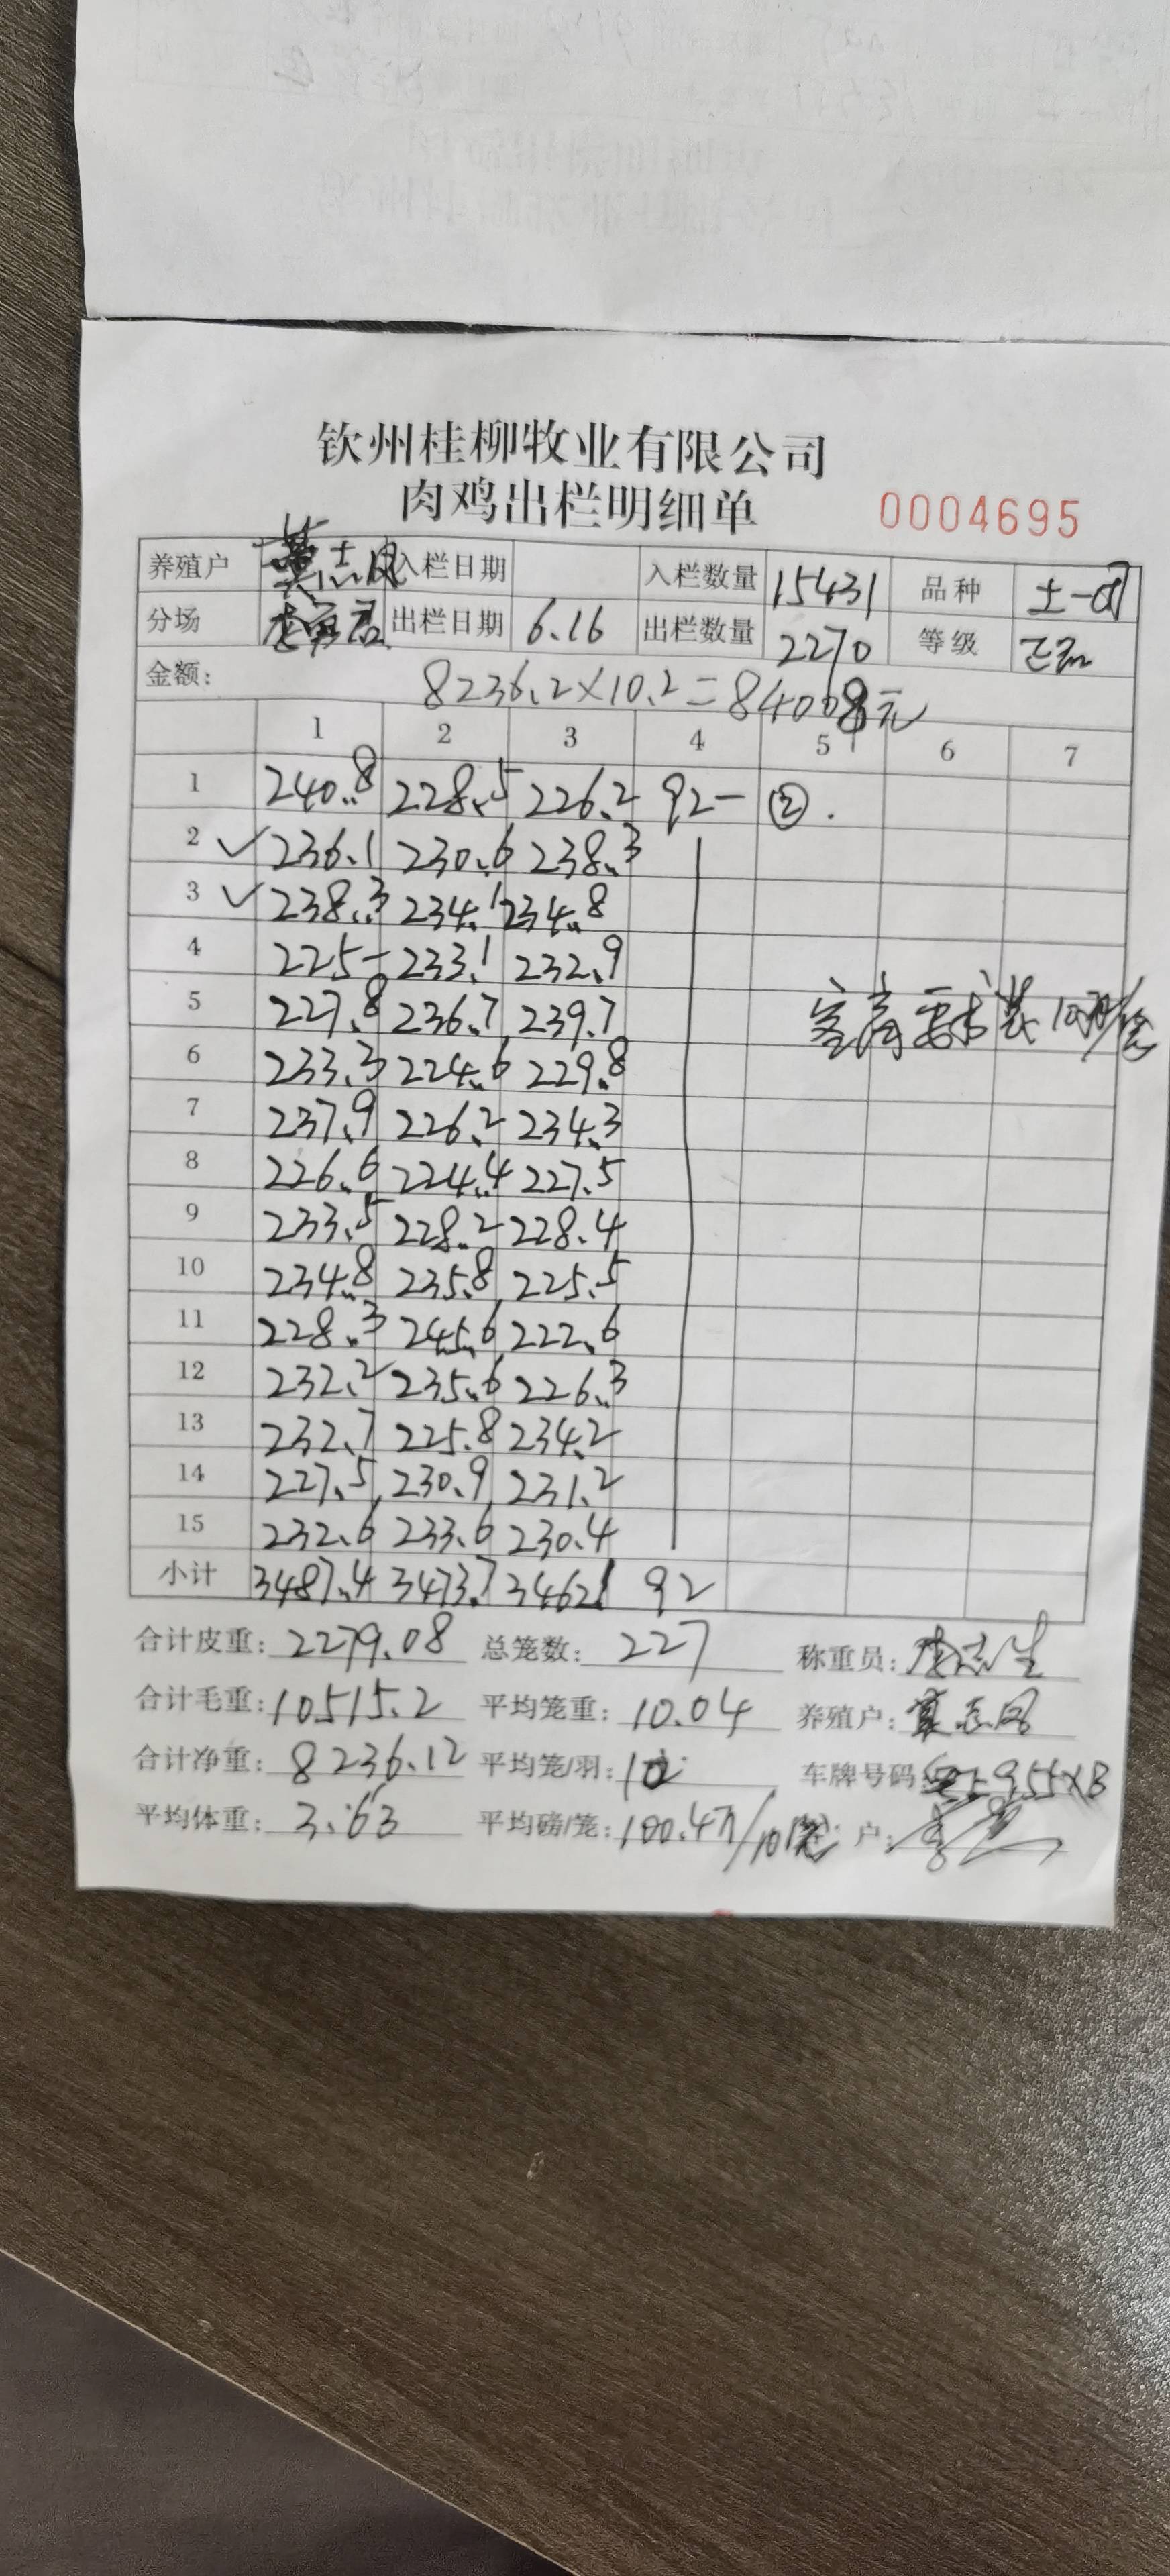 钦州桂柳牧业有限公司
肉鸡出栏明细单 0004695
养殖户 志凤 入栏日期 入栏数量 15431 品种 土一
分场 出栏日期 6.16 出栏数量 2270 等级 正品
金额: 8236.2×10.2=84008元
1 2 3 4 5 6 7
1 240.8 228.5 226.2 92- ②.
2 ✓ 236.1 230.6 238.3
3 ✓ 238.3 234.1 234.8
4 225- 233.1 232.9
5 227.8 236.7 239.7
客户要求装10只/笼
6 233.3 224.6 229.8
7 237.9 226.2 234.3
8 226.6 224.4 227.5
9 233.5 228.2 228.4
10 234.8 235.8 225.5
11 228.3 245.6 222.6
12 232.2 235.6 226.3
13 232.7 225.8 234.2
14 227.5 230.9 231.2
15 232.6 233.6 230.4
小计 3487.4 3473.7 3462.1 92
合计皮重: 2279.08 总笼数: 227 称重员: 志生
合计毛重: 10515.2 平均笼重: 10.04 养殖户: 志凤
合计净重: 8236.12 平均笼/羽: 10 车牌号码: 955XB
平均体重: 3.63 平均磅/笼: 100.4 /10笼 户: